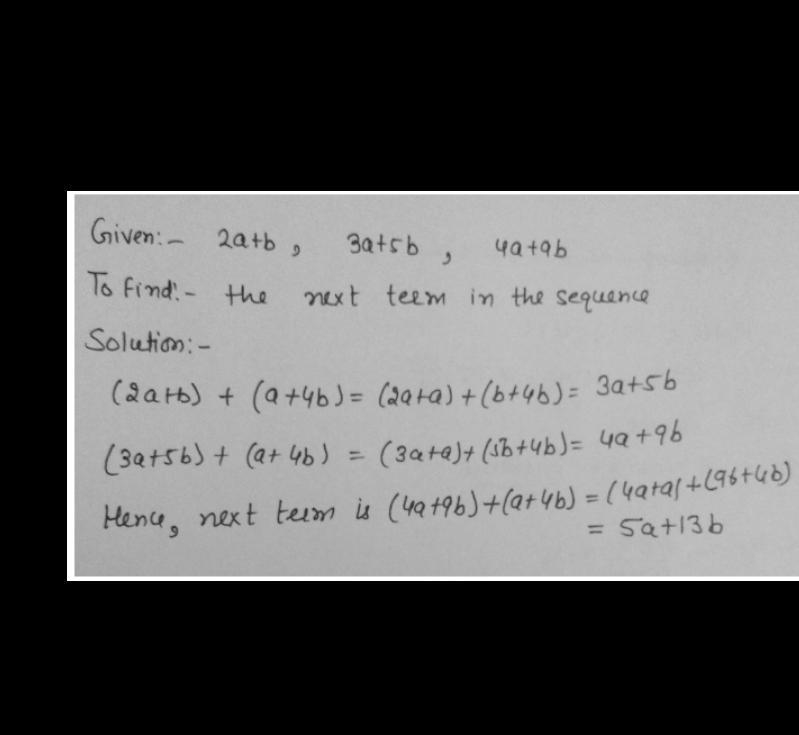 Given:- 2a+b, 3a+5b, 4a+9b
To find:- the next term in the sequence
Solution:-
(2a+b) + (a+4b) = (2a+a) + (b+4b) = 3a+5b
(3a+5b) + (a+4b) = (3a+a)+(5b+4b) = 4a+9b
Hence, next term is (4a+9b)+(a+4b) = (4a+a)+(9b+4b)
= 5a+13b